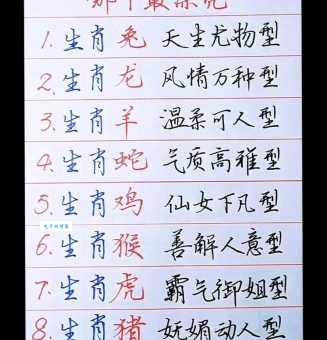 那个最漂亮
1.生肖兔 天生尤物型
2.生肖龙 风情万种型
3.生肖羊 温柔可人型
4.生肖蛇 气质高雅型
5.生肖鸡 仙女下凡型
6.生肖猴 善解人意型
7.生肖虎 霸气御姐型
8.生肖猪 妩媚动人型